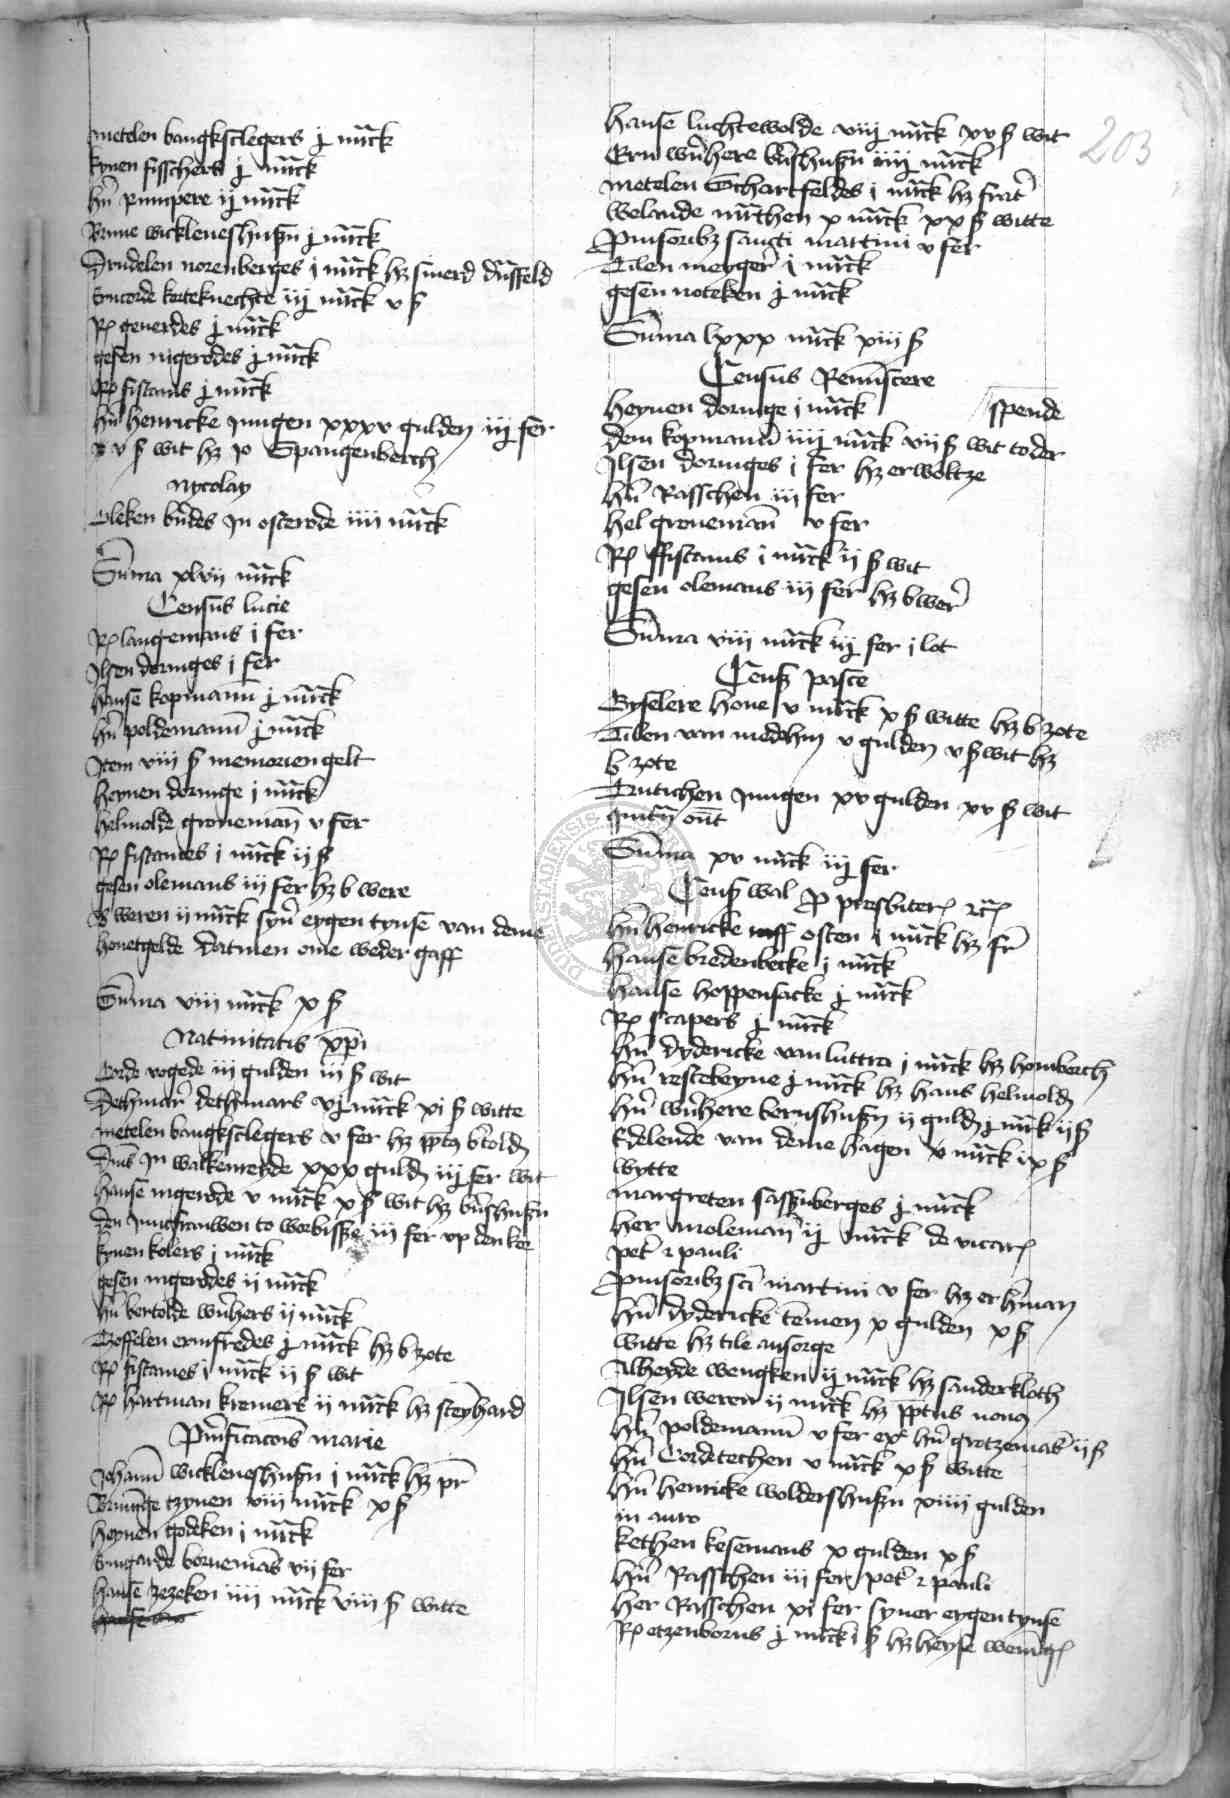 metelen bangksclegers j marck
kynen fisschers j marck
hern Rumpere ij marck
Brune wickleueshusen j marck
Drudelen norenberges j marck hz siuerd dusfeld
Concorde korteknechte iij marck v ß
Rel geuerdes j marck
gesen nigerodes j marck
Rel fistams j marck
hern henricke jungen xxxv gulden iij fer
v ß wit hz jo Spangenberch
Nycolay
Oleken bendes jn osterode iiii marck
Summa xlvii marck
Census lucie
Rel langemans j fer
Jlsen doringes j fer
hanse kopmann j marck
hern poldemann j marck
Jtem viii ß memoriengelt
heynen doringe j marck
helmolde groneman v fer
Rel fistames i marck ii ß
gesen olemans iii fer hz b were
b weren ii marck syner eygen tynse van deme
houetgelde datmen ome weder gaff
Summa viii marck x ß
Natiuitatis xpi
Corde vogede iii gulden iii ß wit
Dethmar dethmars vj marck xi ß witte
metelen bangksclegers v fer hz bertolden
Dns Jn walkenreyde xxx gulden iij fer wit
hanse nigerode v marck x ß wit hz bernshusen
den juncfrauwen to worbisse iii fer vp den ker
kynen kolers j marck
gesen nigerodes ii marck
hern bertolde wernhers ij marck
Toffelen ermfredes j marck hz b zote
Rel fistames j marck ii ß wit
Rel hartman kremers ij marck hz steynhard
Purificacionis marie
Johann wickleueshusen j marck hz pr
Bruninge tzynen viii marck x ß
heynen godeken j marck
Yrmgarde bornemans vii fer
hanse zezeken iiii marck viii ß witte
hanse luchtewolde viij marck xv ß wit
Ern wernhere bernshusen iiij marck
metelen Schartfeldes i marck hz frater
welande marthen x marck xx ß witte
Prouisoribz sancti martini v fer
Tilen meyger j marck
gesen noteken j marck
Summa lxxx marck xiii ß
Census Reminscere
heynen doringe j marck
spende
dem kopmann iiij marck vii ß wit to der
Jlsen doringes i fer hz er weltze
hern Rasschen iii fer
hel groneman v fer
Rel ffistams i marck ii ß wit
gesen olemans iii fer hz b wer
Summa viii marck iij fer j lot
Census pasce
Gyselere hone v marck x ß witte hz b zote
Tilen van medehm v gulden v ß wit hz
b zote
Trutichen jungen xv gulden xv ß wit
Summa xv marck iij fer
Census wal p presbiter etc
hern henricke osten j marck hz fr
hanse bredenbecke j marck
hanse hoppensacke j marck
Rel scapers j marck
hern dydericke van luttra j marck hz homberch
hern restebeyne j marck hz hans helmolden
hern wernhere bernshusen ij gulden j marck ii ß
Edelende van deme hagen v marck ix ß
wytte
margreten sassenberges j marck
her moleman ij marck de vicar
petri et pauli
Prouisoribz sci martini v fer hz er herman
hern dydericke temen x gulden x ß
witte hz tile ansorge
Alheyde wengken ij marck hz sander kloth
Jlsen weren ij marck hz nouus
hern poldemann v fer ex hern gretzemans ii ß
hern Corde techen v marck x ß witte
hern henricke woldershusen xiiii gulden
in auro
kethen kesemans x gulden x ß
hern Rasschen iii fer petri et pauli
her Rasschen xi fer syner eygen tynse
Rel etzenborns j marck i ß hz heyse
203